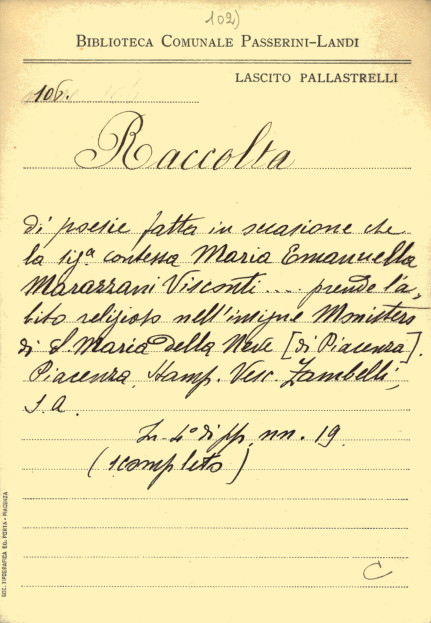 102)
BIBLIOTECA COMUNALE PASSERINI-LANDI
LASCITO PALLASTRELLI
106.
Raccolta
di poesie fatta in occasione che
la sig.a contessa Maria Emanuella
Marazzani Visconti .... prende l'a,
bito religioso nell'insigne Monistero
di S. Maria della Neve [di Piacenza].
Piacenza, Stamp. Vesc. Zambelli,
s.a.
In-4° di pp. nn. 19.
(incompleto)
SOC. TIPOGRAFICA ED. PORTA - PIACENZA
C